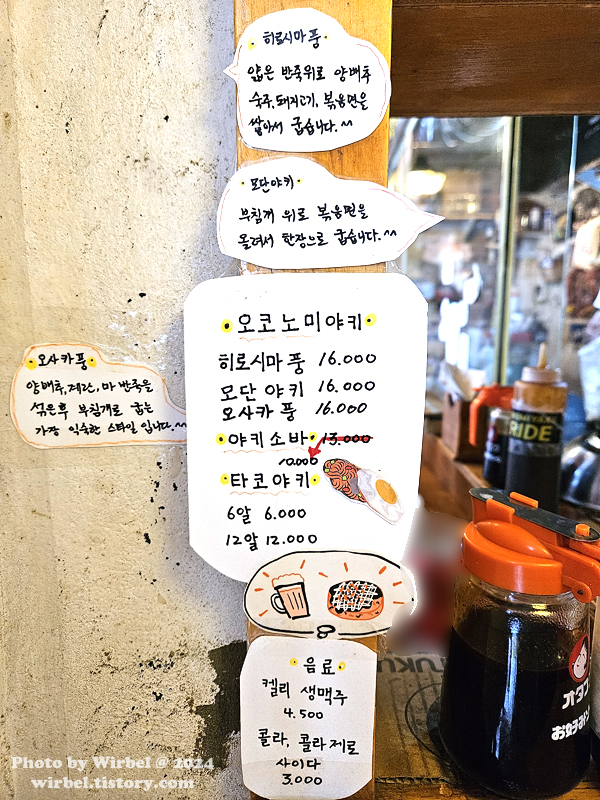 히로시마 풍
얇은 반죽위로 양배추
숙주,돼지고기, 볶음면을
쌓아서 굽습니다.^^
모단야키
부침개 위로 볶음면을
올려서 한장으로 굽습니다.^^
오사카풍
양배추,계란, 마 반죽을
섞은후 부침개로 굽는
가장 익숙한 스타일 입니다.^^
오코노미야키
히로시마 풍 16.000
모단 야키 16.000
오사카 풍 16.000
야키소바 13.000
10.000
타코야키
6알 6.000
12알 12.000
음료
켈리 생맥주
4.500
콜라, 콜라제로
사이다
3.000
RIDE
オタフ
お好み
Photo by Wirbel @ 2024
wirbel.tistory.com